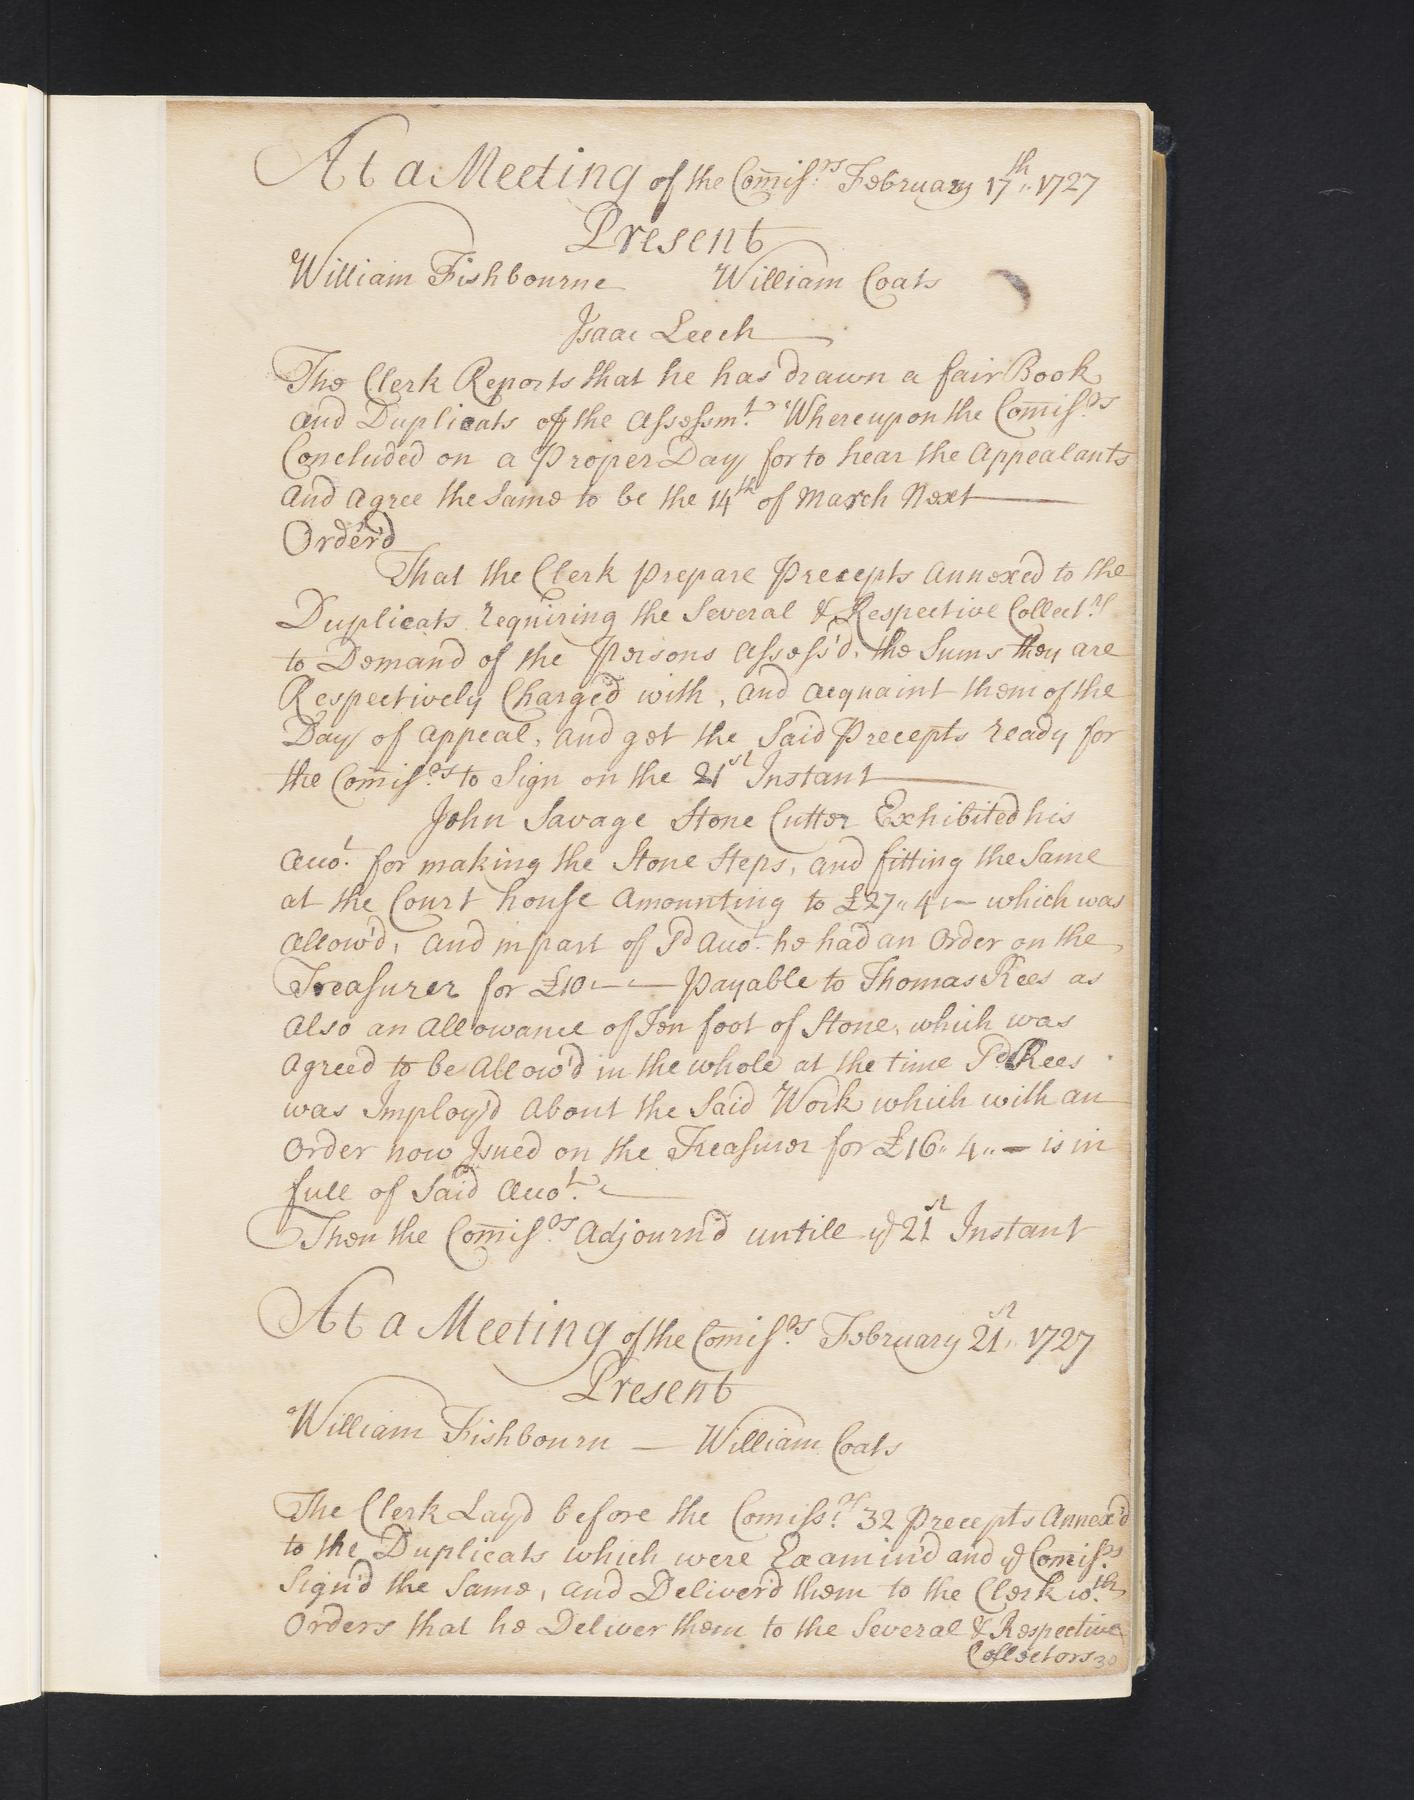 At a Meeting of the Com̄iss:rs February 17th,, 1727
Present
William Fishbourne William Coats
Isaac Leech
The Clerk Reports that he has drawn a fair Book
and Duplicats of the Assessm:t Whereupon the Com̄iss:rs
Concluded on a Proper Day for to hear the Appealants
and agree the Same to be the 14th of March Next
Order'd
That the Clerk prepare Precepts Annexed to the
Duplicats requiring the Several & Respective Collect:rs
to Demand of the Persons Assess'd, the Sums they are
Respectively Charge'd with, and acquaint them of the
Day of appeal, and get the Said Precepts ready for
the Com̄iss:rs to Sign on the 21st Instant
John Savage Stone Cutter Exhibited his
Acco:t for making the Stone Steps, and fitting the Same
at the Court house Amounting to £27,, 4,, — which was
allow'd, and in part of Sd Acco:t he had an Order on the
Treasurer for £10 — — Payable to Thomas Rees as
Also an allowance of Ten foot of Stone, which was
Agreed to be Allow'd in the whole at the time Sd Rees
was Imploy'd About the Said Work which with an
Order now Isued on the Treasurer for £16,, 4,, — is in
full of Said Acco:t
Then the Com̄iss:rs Adjourn'd untill ye 21st Instant
At a Meeting of the Com̄iss:rs February 21st,, 1727
Present
William Fishbourn — William Coats
The Clerk Lay'd before the Comiss:rs 32 Precepts Annex'd
to the Duplicats which were Examin'd and ye Com̄iss:rs
Sign'd the Same, and Deliver'd them to the Clerk w:th
Orders that he Deliver them to the Several & Respective
Collectors 30